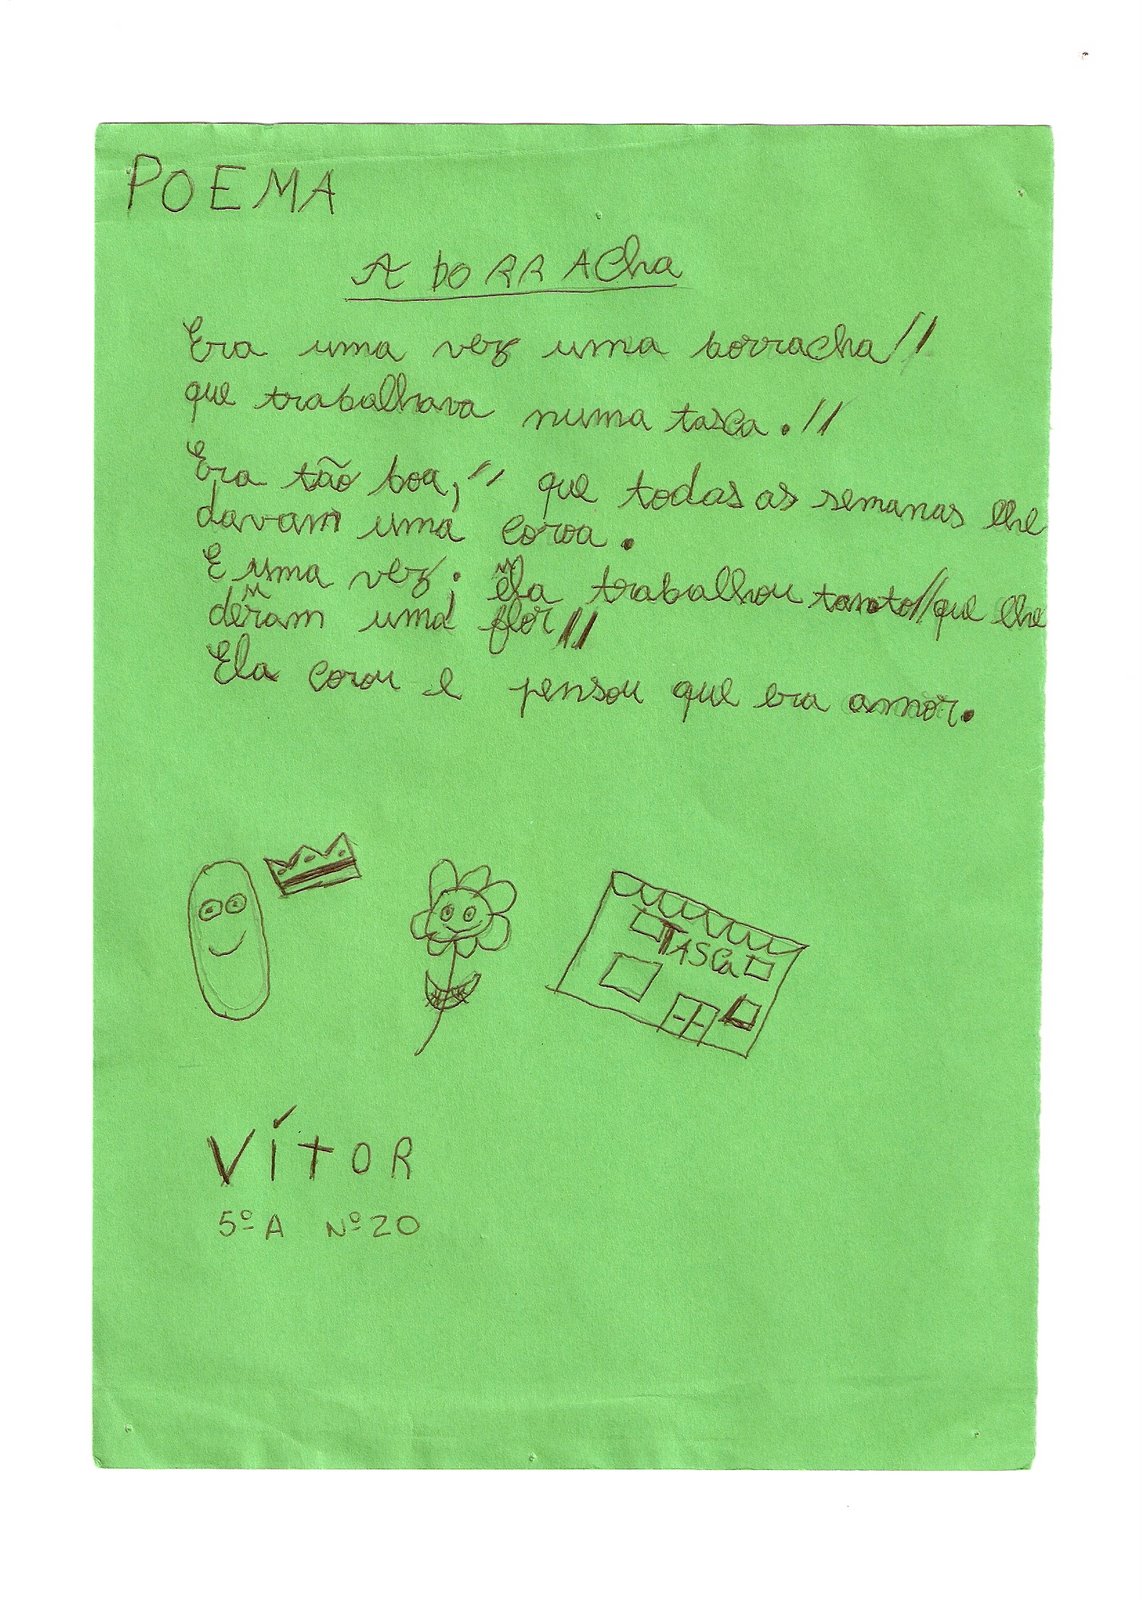 POEMA
A borracha
Era uma vez uma borracha//
que trabalhava numa tasca.//
Era tão boa,// que todas as semanas lhe
davam uma coroa.
E uma vez, ela trabalhou tanto//que lhe
deram uma flor//
Ela corou e pensou que era amor.
TASCa
VÍtOR
5º A Nº 20